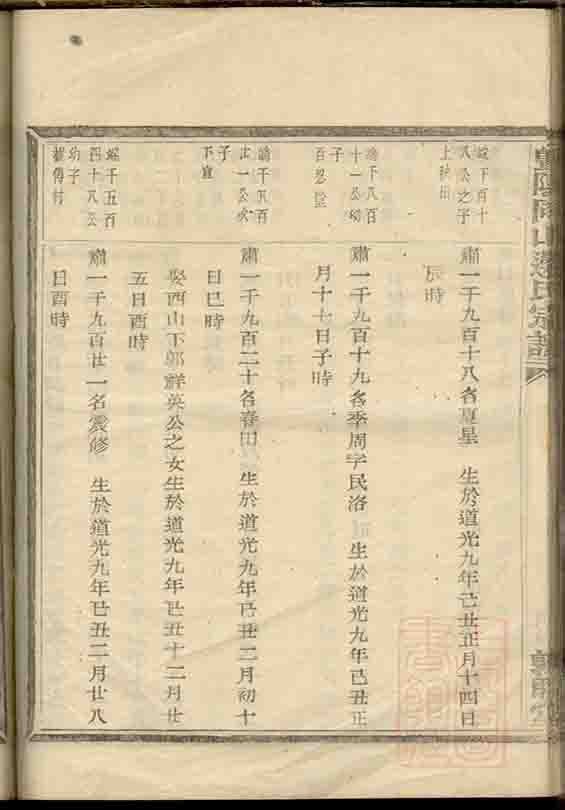 端下百十
八公之子
上
肅一千九百十八名夏星 生於道光九年己丑正月十四日
辰時
端下八百
十一公幼
子
百忍堂
肅一千九百十九名季周字民洛 生於道光九年己丑正
月十七日子時
端千八百
一公次
子
下宣
肅一千九百二十名春田 生於道光九年己丑二月初十
日巳時
娶西山下郭祥英公之女生於道光九年己丑十二月廿
五日酉時
端千五百
四十八公
幼子
村
肅一千九百廿一名震修 生於道光九年己丑二月廿八
日酉時
山 氏宗譜